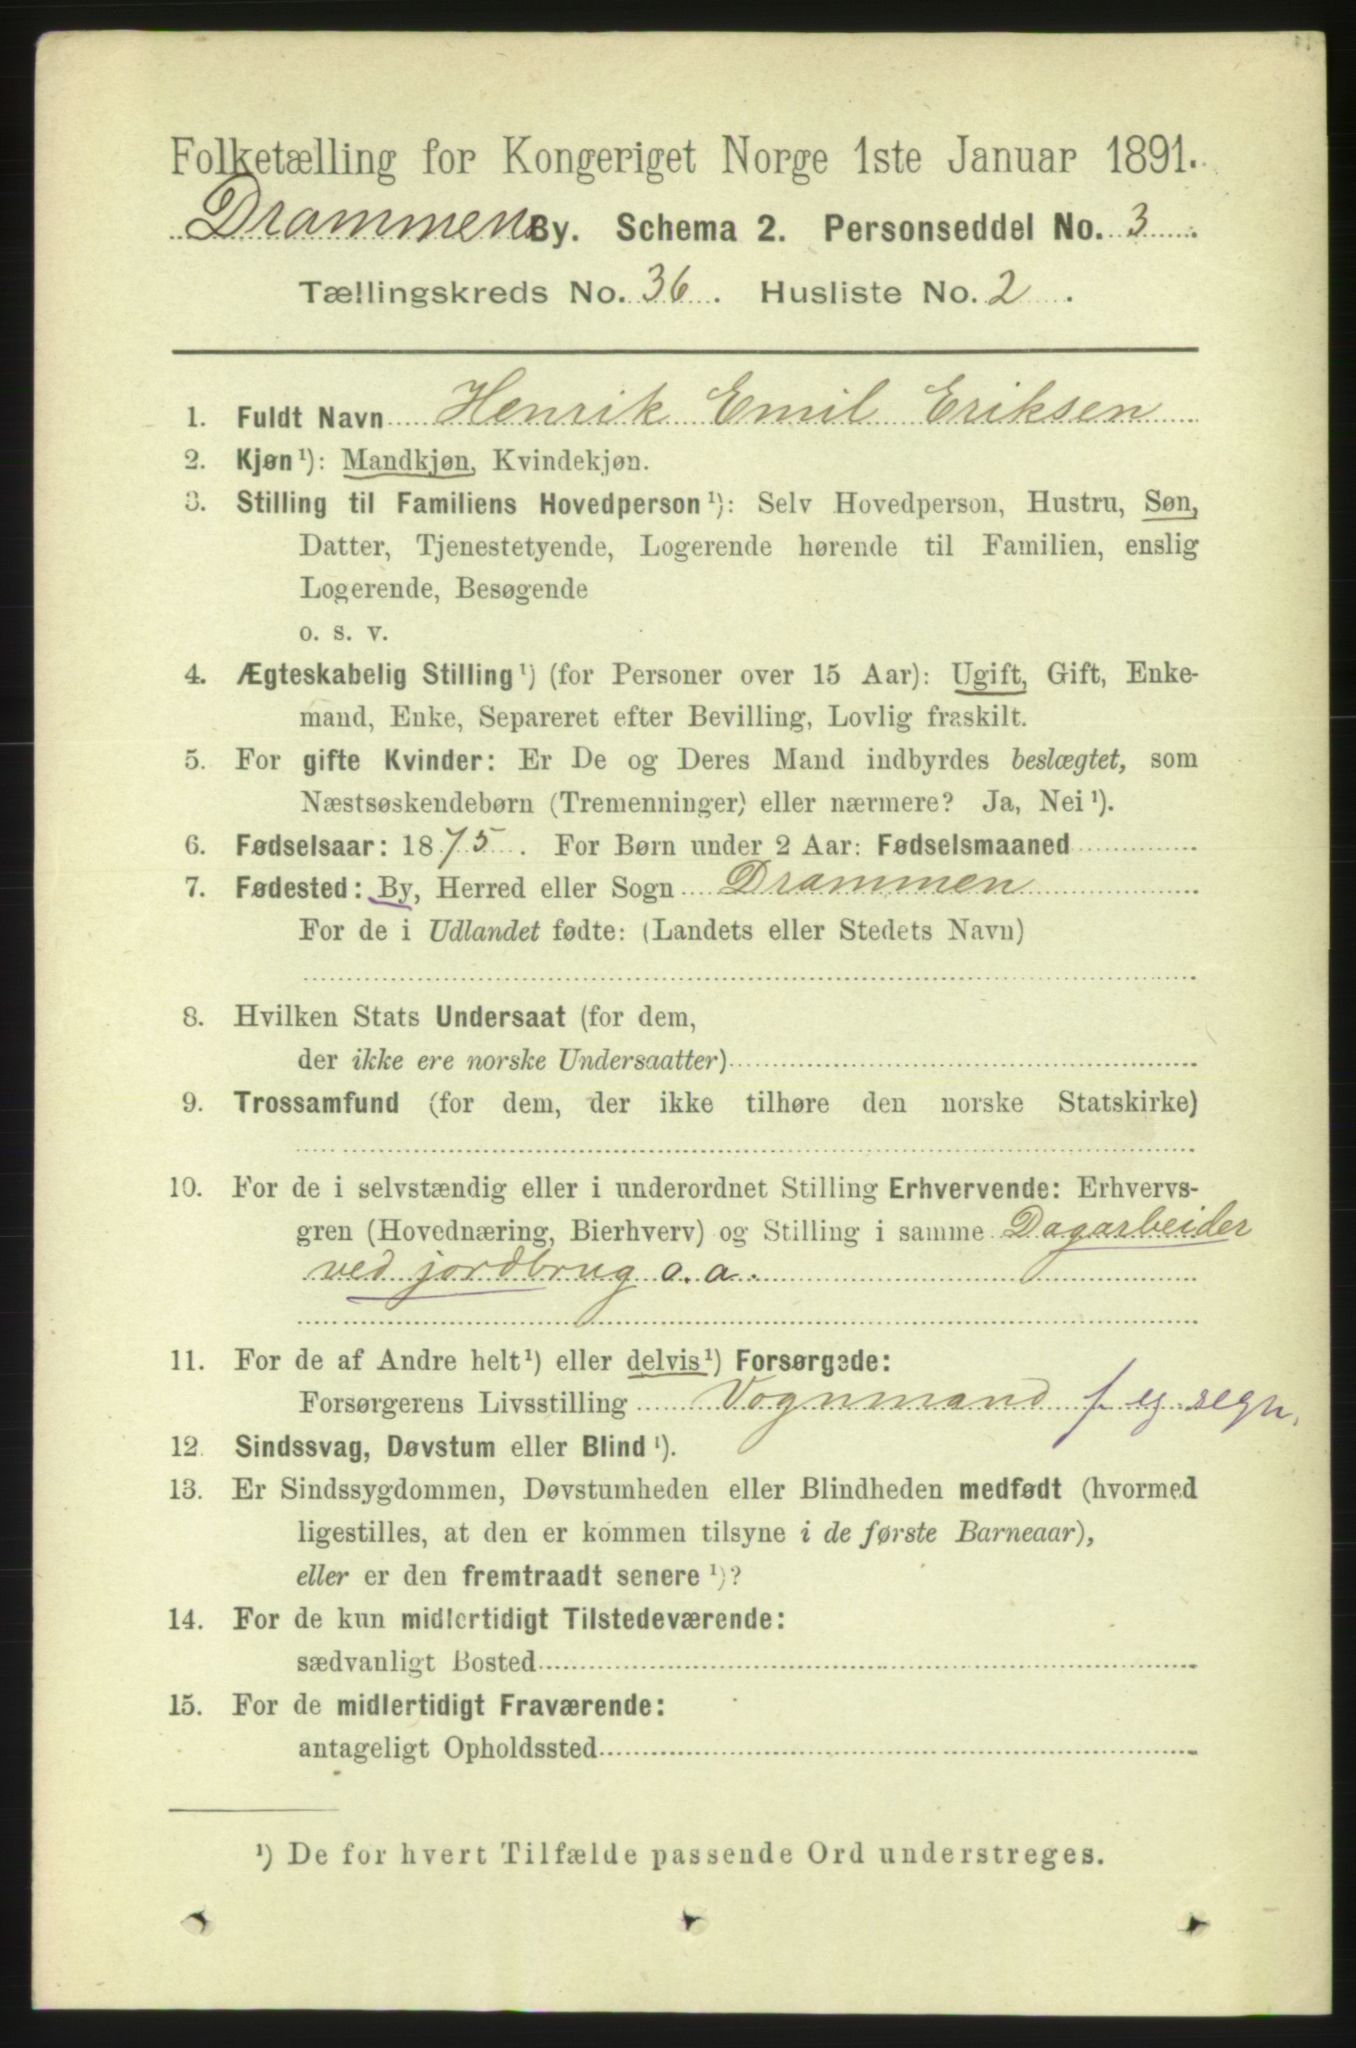 Folketælling for Kongeriget Norge 1ste Januar 1891.
Drammens By. Schema 2. Personseddel No. 3.
Tællingskreds No. 36. Husliste No. 2.
1. Fuldt Navn Henrik Emil Eriksen
2. Kjøn¹): Mandkjøn, Kvindekjøn.
3. Stilling til Familiens Hovedperson¹): Selv Hovedperson, Hustru, Søn,
Datter, Tjenestetyende, Logerende hørende til Familien, enslig
Logerende, Besøgende
o. s. v.
4. Ægteskabelig Stilling¹) (for Personer over 15 Aar): Ugift, Gift, Enke-
mand, Enke, Separeret efter Bevilling, Lovlig fraskilt.
5. For gifte Kvinder: Er De og Deres Mand indbyrdes beslægtet, som
Næstsøskendebørn (Tremenninger) eller nærmere? Ja, Nei¹).
6. Fødselsaar: 1875. For Børn under 2 Aar: Fødselsmaaned
7. Fødested: By, Herred eller Sogn Drammen
For de i Udlandet fødte: (Landets eller Stedets Navn)
8. Hvilken Stats Undersaat (for dem,
der ikke ere norske Undersaatter)
9. Trossamfund (for dem, der ikke tilhøre den norske Statskirke)
10. For de i selvstændig eller i underordnet Stilling Erhvervende: Erhvervs-
gren (Hovednæring, Bierhverv) og Stilling i samme Dagarbeider
ved jordbrug o. a.
11. For de af Andre helt¹) eller delvis¹) Forsørgede:
Forsørgerens Livsstilling Vognmand f. eg. regn.
12. Sindssvag, Døvstum eller Blind¹).
13. Er Sindssygdommen, Døvstumheden eller Blindheden medfødt (hvormed
ligestilles, at den er kommen tilsyne i de første Barneaar),
eller er den fremtraadt senere¹)?
14. For de kun midlertidigt Tilstedeværende:
sædvanligt Bosted
15. For de midlertidigt Fraværende:
antageligt Opholdssted
¹) De for hvert Tilfælde passende Ord understreges.